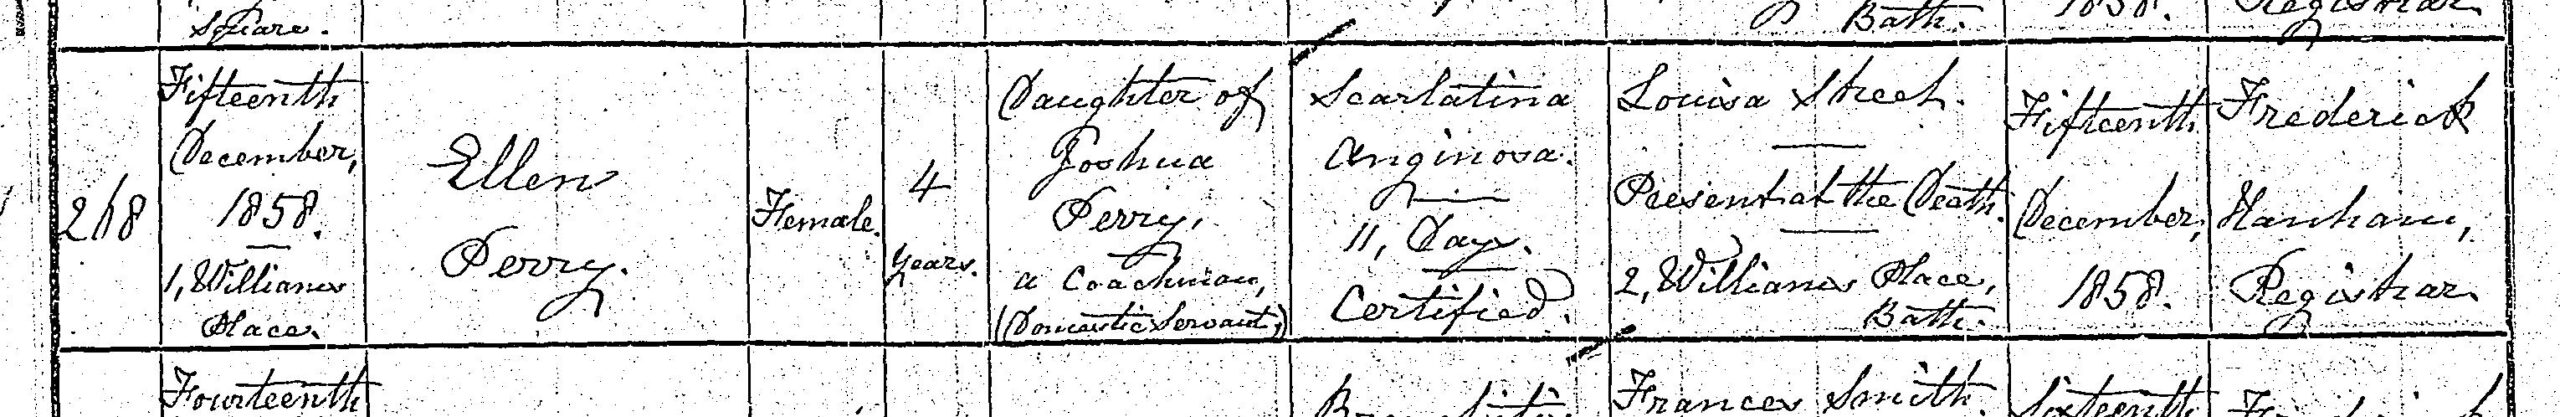 Square.
Bath.
1858.
Registrar
268
Fifteenth
December,
1858.
1, Williams
Place.
Ellen
Perry.
Female.
4
Years.
Daughter of
Joshua
Perry,
a Coachman,
(Domestic Servant,)
Scarlatina
Anginosa.
11, Days.
Certified.
Louisa Street.
Present at the Death.
2, Williams Place,
Bath.
Fifteenth
December,
1858.
Frederick
Hanham,
Registrar.
Fourteenth
Frances Smith.
Sixteenth